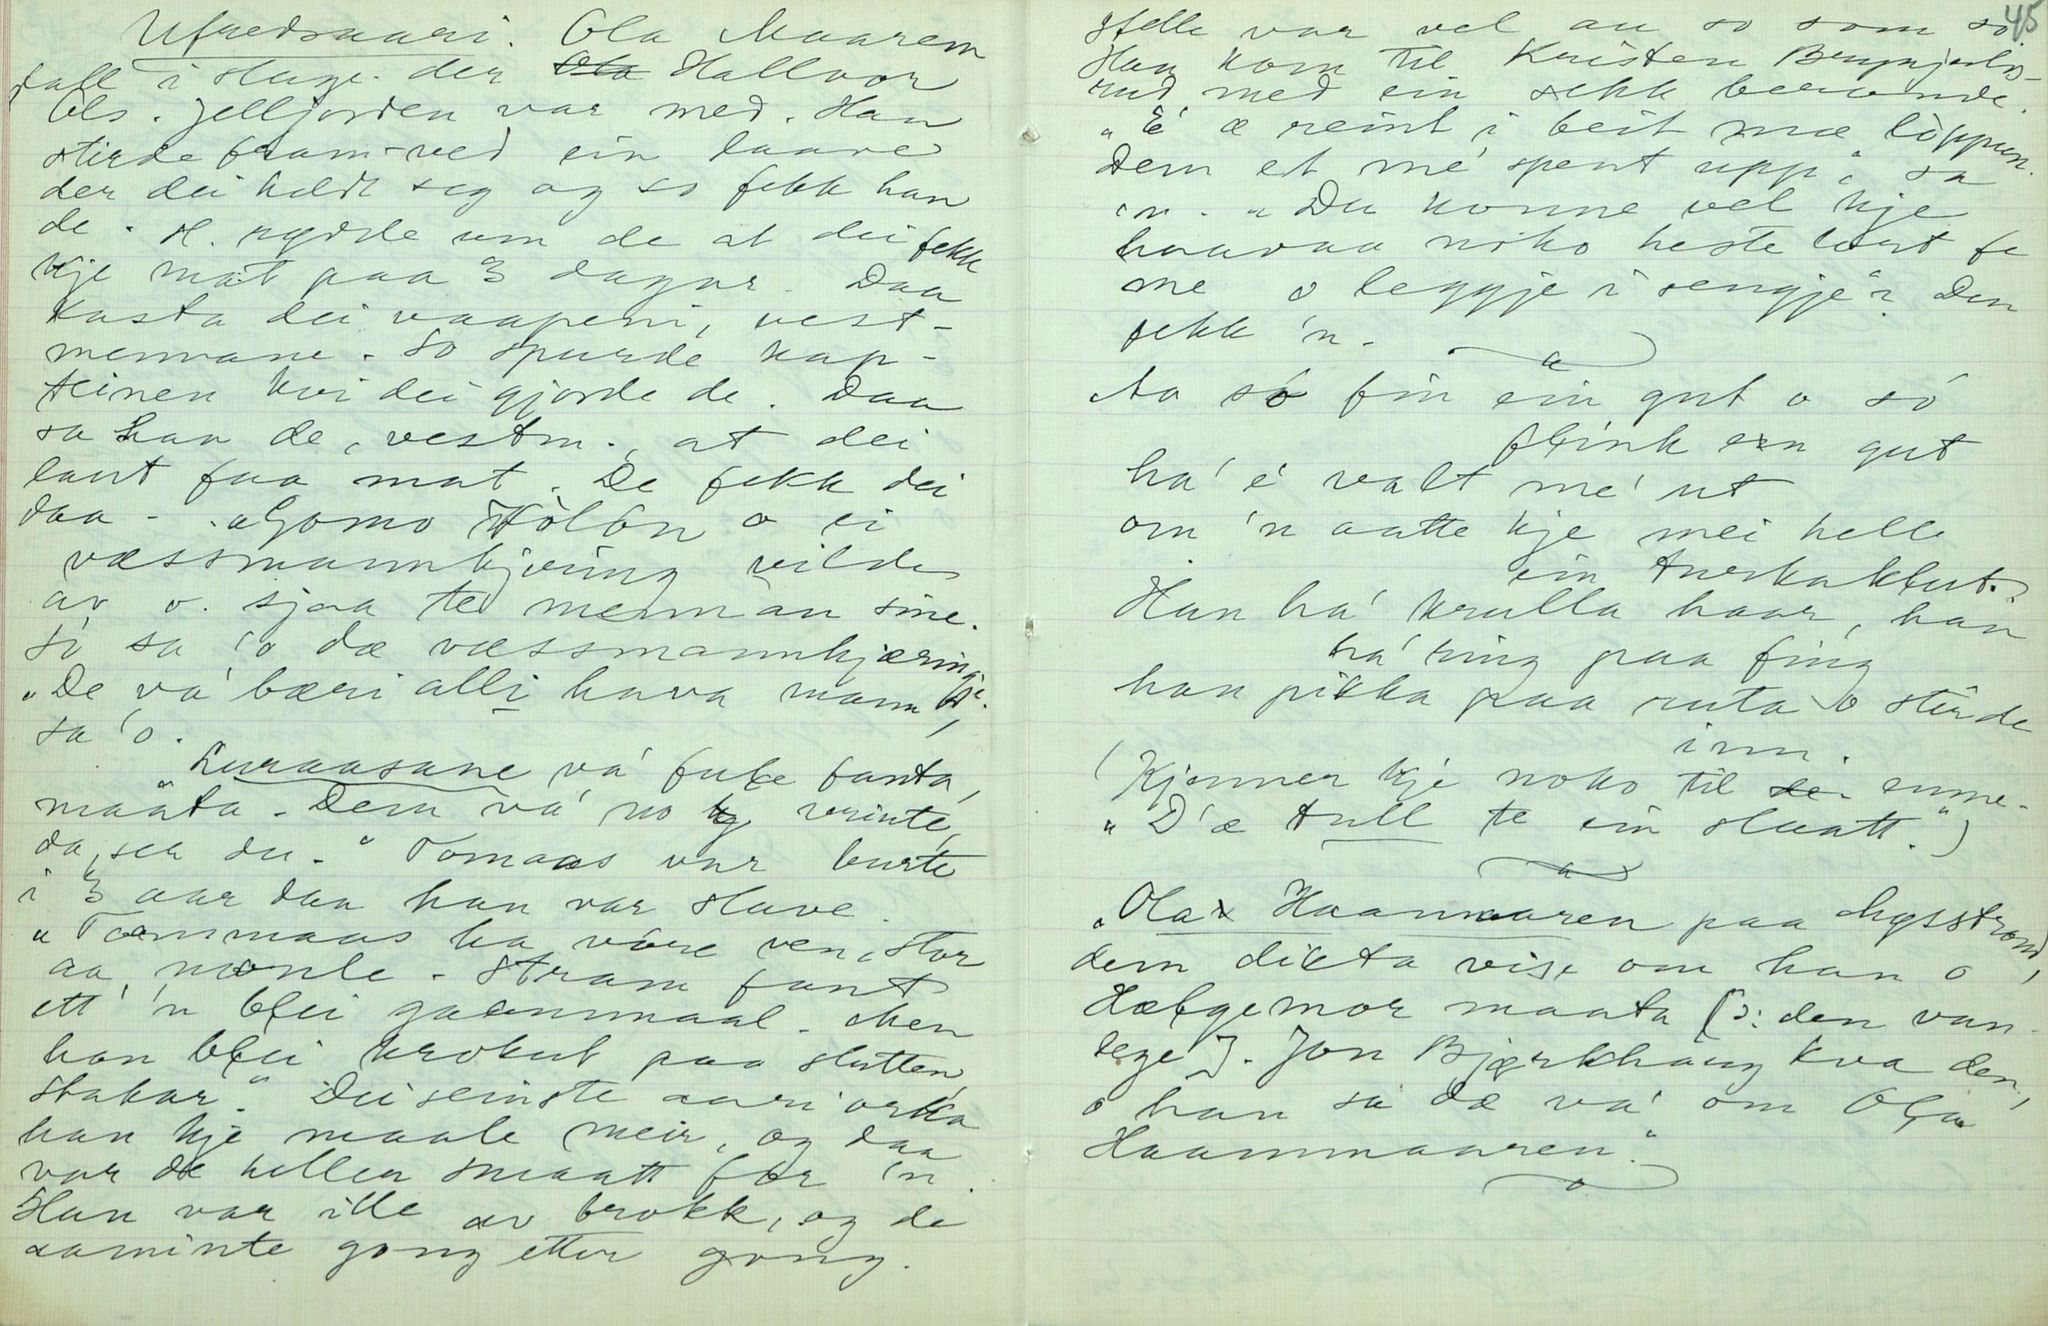 Ufredsaari. Ola Maarem
fall i slage. der Ola Hallvor
Ols. Jelljorden var med. Han
stirde fram-ved ein laave
der dei heldt seg og so fekk han
de. H. sygde um de at dei fekk
kje mat paa 3 dagar. Daa
kasta dei vaapeni, vest-
mennane. So spurde kap-
teinen kvi dei gjorde de. Daa
sa han de, vestm., at dei
laut faa mat. De fekk dei
daa. - "Gomo Hòlòn o ei
væssmannkjering vilde
av o. sjaa te mennan sine.
Sò sa 'o dæ væssmannkjæringje.
"De va' bæri alli hava mann",
sa 'o.
"Luraasane va' fule fanta,
maata. Dem va' no verinte,
da, sea du." Tomaas var burte
i 3 aar daa han var slave.
"Tommaas ha vöre ven, stor
aa, maale. Stram fant
ett 'n blei gaanmaal. Men
han blei krokut paa slutten,
stakar." Dei seinste aari orka
han kje maale meir, og daa
var de heller smaatt for 'n.
Han var ille av brokk, og de
daminte gong etter gong.
45
Ille var vel au so som so
Han kom til Kristen Brynjuls-
rud med ein sekk berande.
"E' æ reint i beit mæ lòppun.
Dem et me' spent upp", sa
'n. "Du konne vel kje
haavaa noko heste laust fe
me o leggje i sengje"? Den
fekk 'n.
Aa sò fin ein gut o sò
flink ein gut
ha' e' valt me' ut
om 'n aatte kje mei helle
ein tverkaklut.
Han ha' krulla haar, han
ha' ring paa fing
han pikka paa ruta o stirde
inn.
(Kjenner kje noko til de- enme.
"D'æ tull te ein slaatt.")
"Ola Haanmaaren paa Lysstrond,
dem dikta vise om han o
Hælgemor maata (ɔ: den van-
lege). Jon Bjørkhaug kva den,
o han sa dæ va' om Ola
Haammaaren."